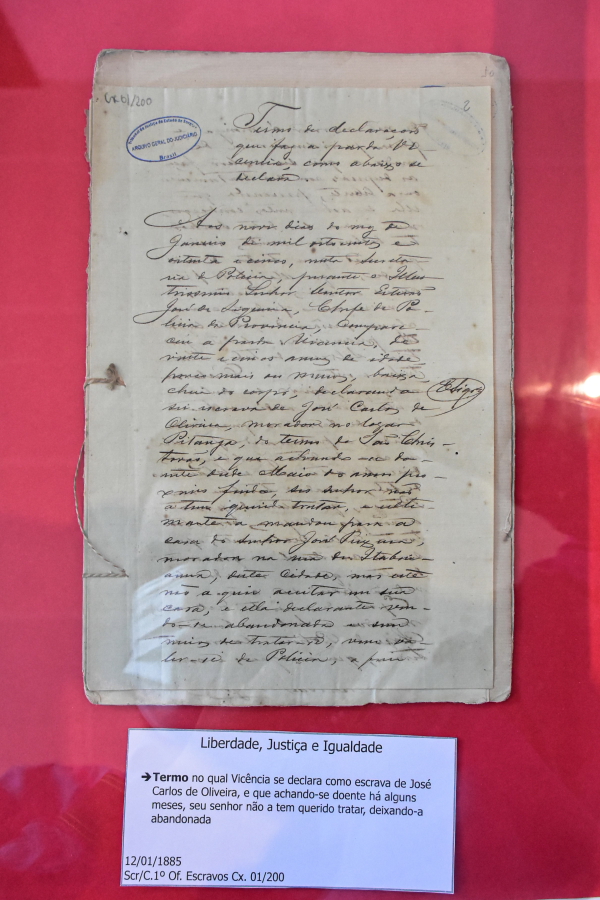 Cx. 01/200
2
ARQUIVO GERAL DO JUDICIÁRIO
Brasil
Termo de declaração
que faz a parda Vi-
cencia, como abaixo se
declara
Aos nove dias do mez de
Janeiro de mil oito centos e
oitenta e cinco, nesta Secreta-
ria de Policia, perante o Illus-
trissimo Senhor Doutor
José de Siqueira, Chefe de Po-
licia da Provincia, compare-
ceu a parda Vicencia, de
vinte e cinco annos de idade
pouco mais ou menos, baixa,
cheia do corpo, declarando
ser escrava de José Carlos de
Oliveira, morador no lugar
Pitanga, do termo de São Chris-
tovão, e que achando-se do-
ente desde Maio do anno pro-
ximo findo, seo senhor não
a tem querido tratar, e ulti-
mamente a mandou para a
casa do Senhor José
morador na rua de Itabai-
anna, desta Cidade, mas este
não a quiz aceitar em sua
casa, e ella declarante ven-
do-se abandonada e sem
meios de tratar-se, vem va-
ler-se da Policia, a
Liberdade, Justiça e Igualdade
➔Termo no qual Vicência se declara como escrava de José
Carlos de Oliveira, e que achando-se doente há alguns
meses, seu senhor não a tem querido tratar, deixando-a
abandonada
12/01/1885
Scr/C.1º Of. Escravos Cx. 01/200